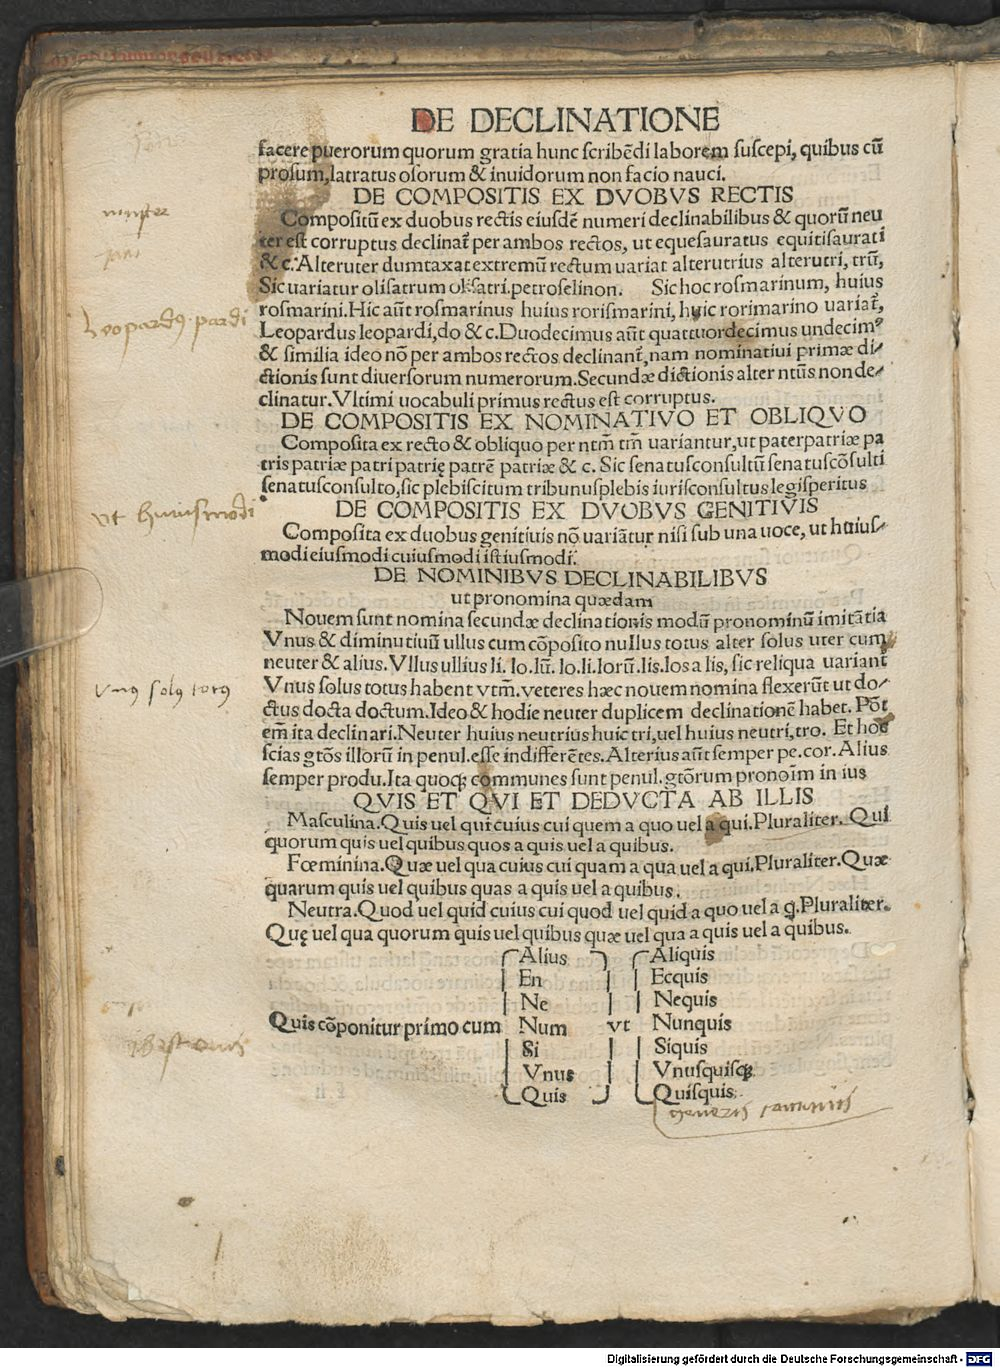 DE DECLINATIONE
facere puerorum quorum gratia hunc scribēdi laborem suscepi, quibus cū
prosum, latratus osorum & inuidorum non facio nauci.
DE COMPOSITIS EX DVOBVS RECTIS
Compositū ex duobus rectis eiusdē numeri declinabilibus & quorū neu
ter est corruptus declinat̄ per ambos rectos, ut equesauratus equitisaurati
& c. Alteruter dumtaxat extremū rectum uariat alterutrius alterutri, trū,
Sic uariatur olisatrum olisatri. petroselinon. Sic hoc rosmarinum, huius
rosmarini. Hic aūt rosmarinus huius rorismarini, huic rorimarino uariat̄,
Leopardus leopardi, do & c. Duodecimus aūt quattuordecimus undecimꝰ
& similia ideo nō per ambos rectos declinant̄, nam nominatiui primæ di/
ctionis sunt diuersorum numerorum. Secundæ dictionis alter ntūs non de/
clinatur. Vltimi uocabuli primus rectus est corruptus.
DE COMPOSITIS EX NOMINATIVO ET OBLIQVO
Composita ex recto & obliquo per ntm̄ tm̄ uariantur, ut paterpatriæ pa
tris patriæ patri patrię patrē patriæ & c. Sic senatusconsultū senatuscōsulti
senatusconsulto, sic plebiscitum tribunusplebis iurisconsultus legisperitus
DE COMPOSITIS EX DVOBVS GENITIVIS
Composita ex duobus genitiuis nō uariātur nisi sub una uoce, ut huius/
modi eiusmodi cuiusmodi istiusmodi.
DE NOMINIBVS DECLINABILIBVS
ut pronomina quædam
Nouem sunt nomina secundæ declinationis modū pronominū imitātia
Vnus & diminutiuū ullus cum cōposito nullus totus alter solus uter cum
neuter & alius. Vllus ullius li. lo. lū. lo. li. lorū. lis. los a lis, sic reliqua uariant̄
Vnus solus totus habent vtm̄. veteres hæc nouem nomina flexerūt ut do/
ctus docta doctum. Ideo & hodie neuter duplicem declinationē habet. Pōt
em̄ ita declinari. Neuter huius neutrius huic tri, uel huius neutri, tro. Et hoc
scias gtōs illorū in penul. esse indifferētes. Alterius aūt semper pe. cor. Alius
semper produ. Ita quoqꝫ communes sunt penul. gtōrum pronoīm in ius
QVIS ET QVI ET DEDVCTA AB ILLIS
Masculina. Quis uel qui cuius cui quem a quo uel a qui. Pluraliter. Qui
quorum quis uel quibus quos a quis uel a quibus.
Fœminina. Quæ uel qua cuius cui quam a qua uel a qui. Pluraliter. Quæ
quarum quis uel quibus quas a quis uel a quibus.
Neutra. Quod uel quid cuius cui quod uel quid a quo uel a q̄. Pluraliter.
Quę uel qua quorum quis uel quibus quæ uel qua a quis uel a quibus.
Alius Aliquis
En Ecquis
Ne Nequis
Quis cōponitur primo cum Num vt Nunquis
Si Siquis
Vnus Vnusquisqꝫ
Quis Quisquis
generis communis
Leopardꝰ. pardi
ut huiusmodi
Vnꝰ solꝰ totꝰ
Digitalisierung gefördert durch die Deutsche Forschungsgemeinschaft - DFG